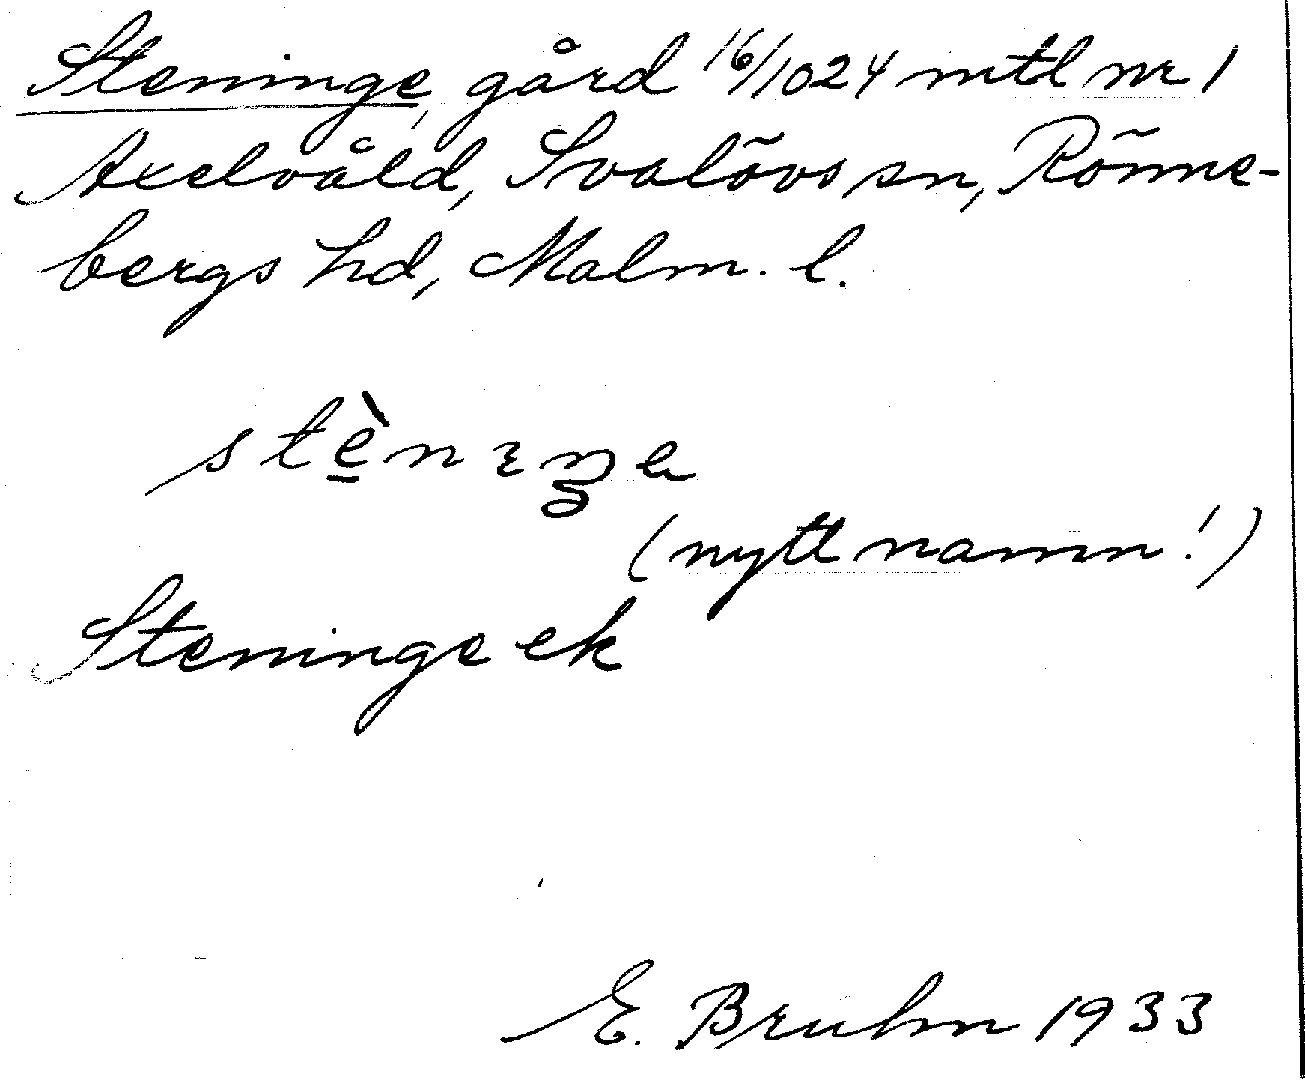 Steninge, gård 16/1024 mtl nr 1
Axelvåld, Svalövs sn, Rönne-
bergs hd, Malm. l.
stè̱nɩŋe
(nytt namn!)
Steninge ek
E. Bruhn 1933